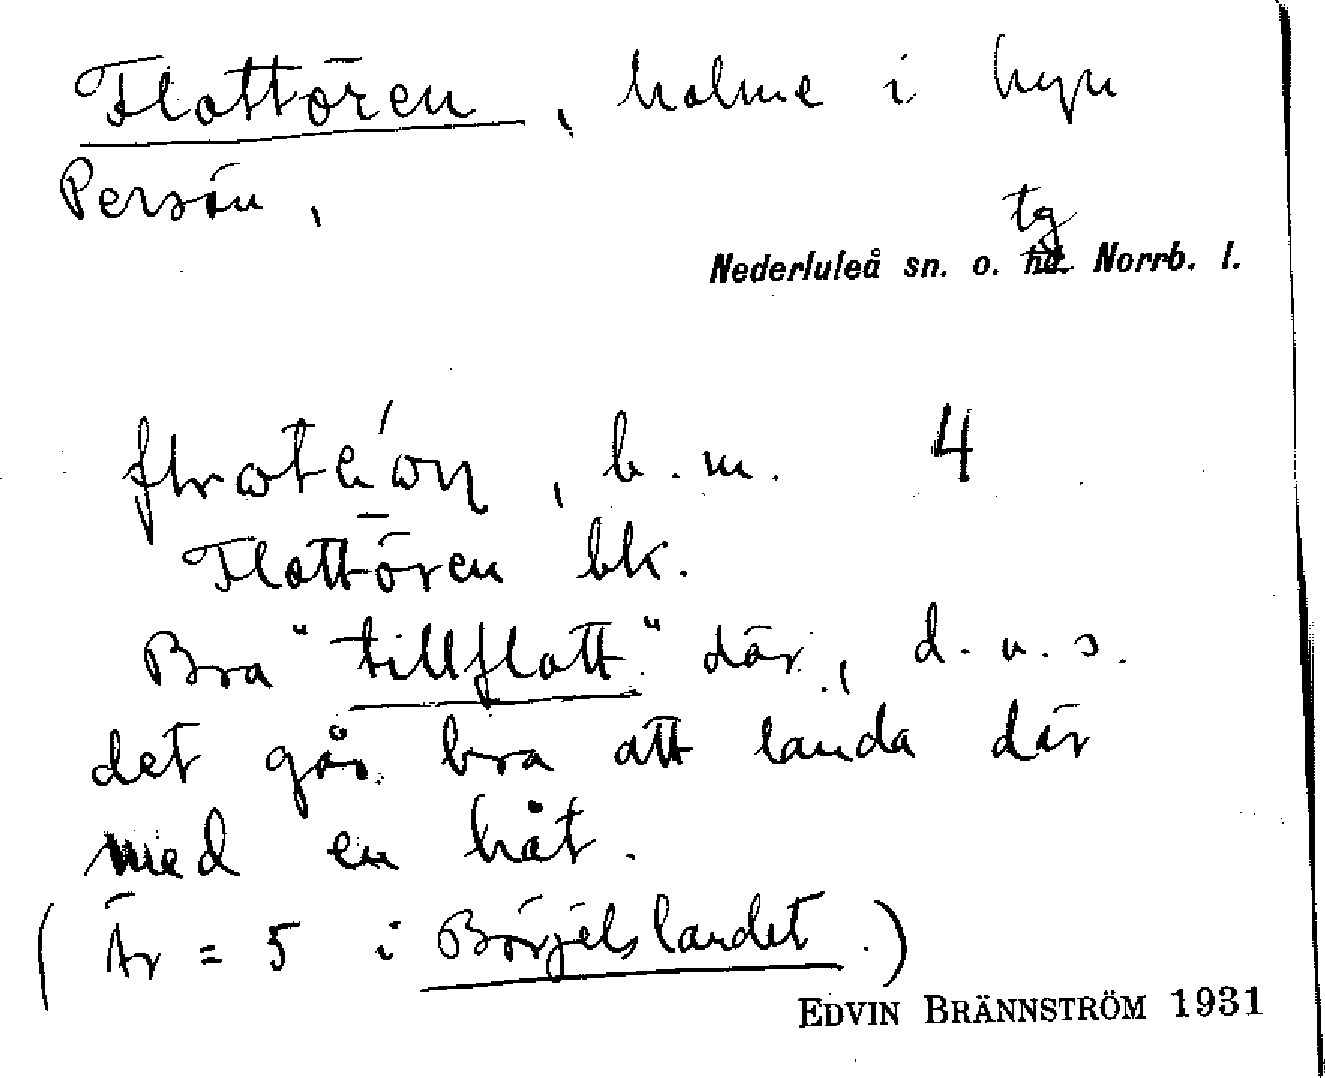 Flottören, holme i byn
Persön,
tg
Nederluleå sn. o. hd. Norrb. l.
b. m. 4
Flottören bk.
Bra "tillflott" där, d. v. s.
det går bra att landa där
med en båt.
(Är = 5 i Börjelslandet.)
EDVIN BRÄNNSTRÖM 1931